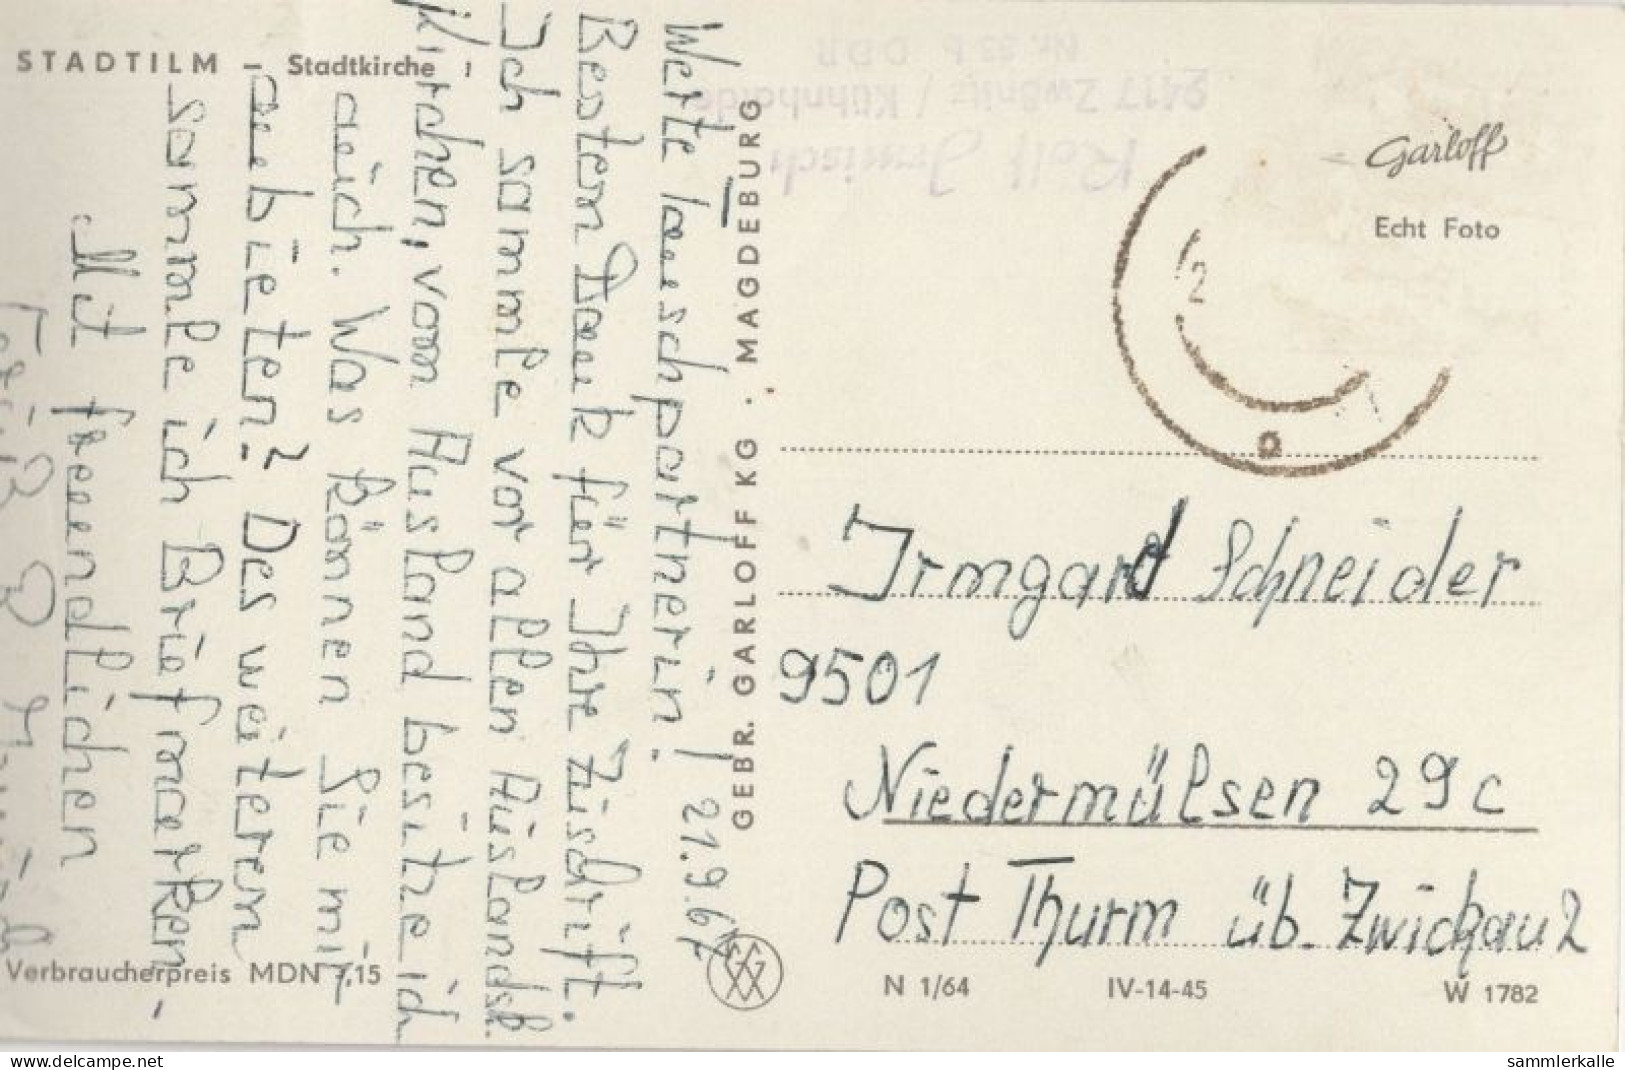 STADTILM – Stadtkirche
Werte Tauschpartnerin! 21.9.67
Besten Dank für Ihre Zuschrift.
Ich sammle vor allen Auslands-
Kirchen, vom Ausland besitze ich
auch. Was können Sie mir
anbieten? Des weiteren
sammle ich Briefmarken.
Mit freundlichen
Verbraucherpreis MDN -,15
GEBR. GARLOFF KG · MAGDEBURG
Rolf Irmisch
9417 Zwönitz / Kühnhaide
Nr. 33 b DDR
Garloff
Echt Foto
Irmgard Schneider
9501
Niedermülsen 29c
Post Thurm üb. Zwickau 2
N 1/64 IV-14-45 W 1782
delcampe.net
sammlerkalle